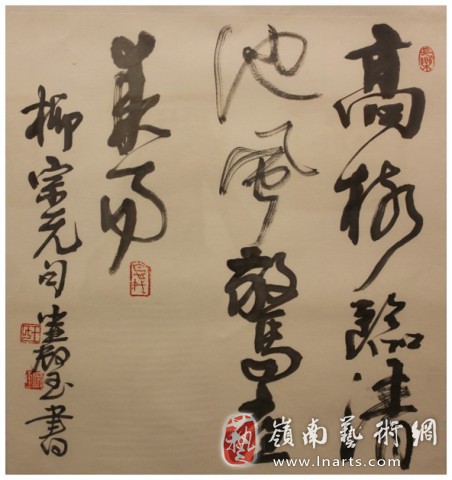 高樹臨清
池風驚夜
來雨
柳宗元句 書
嶺南藝術網
www.lnarts.com